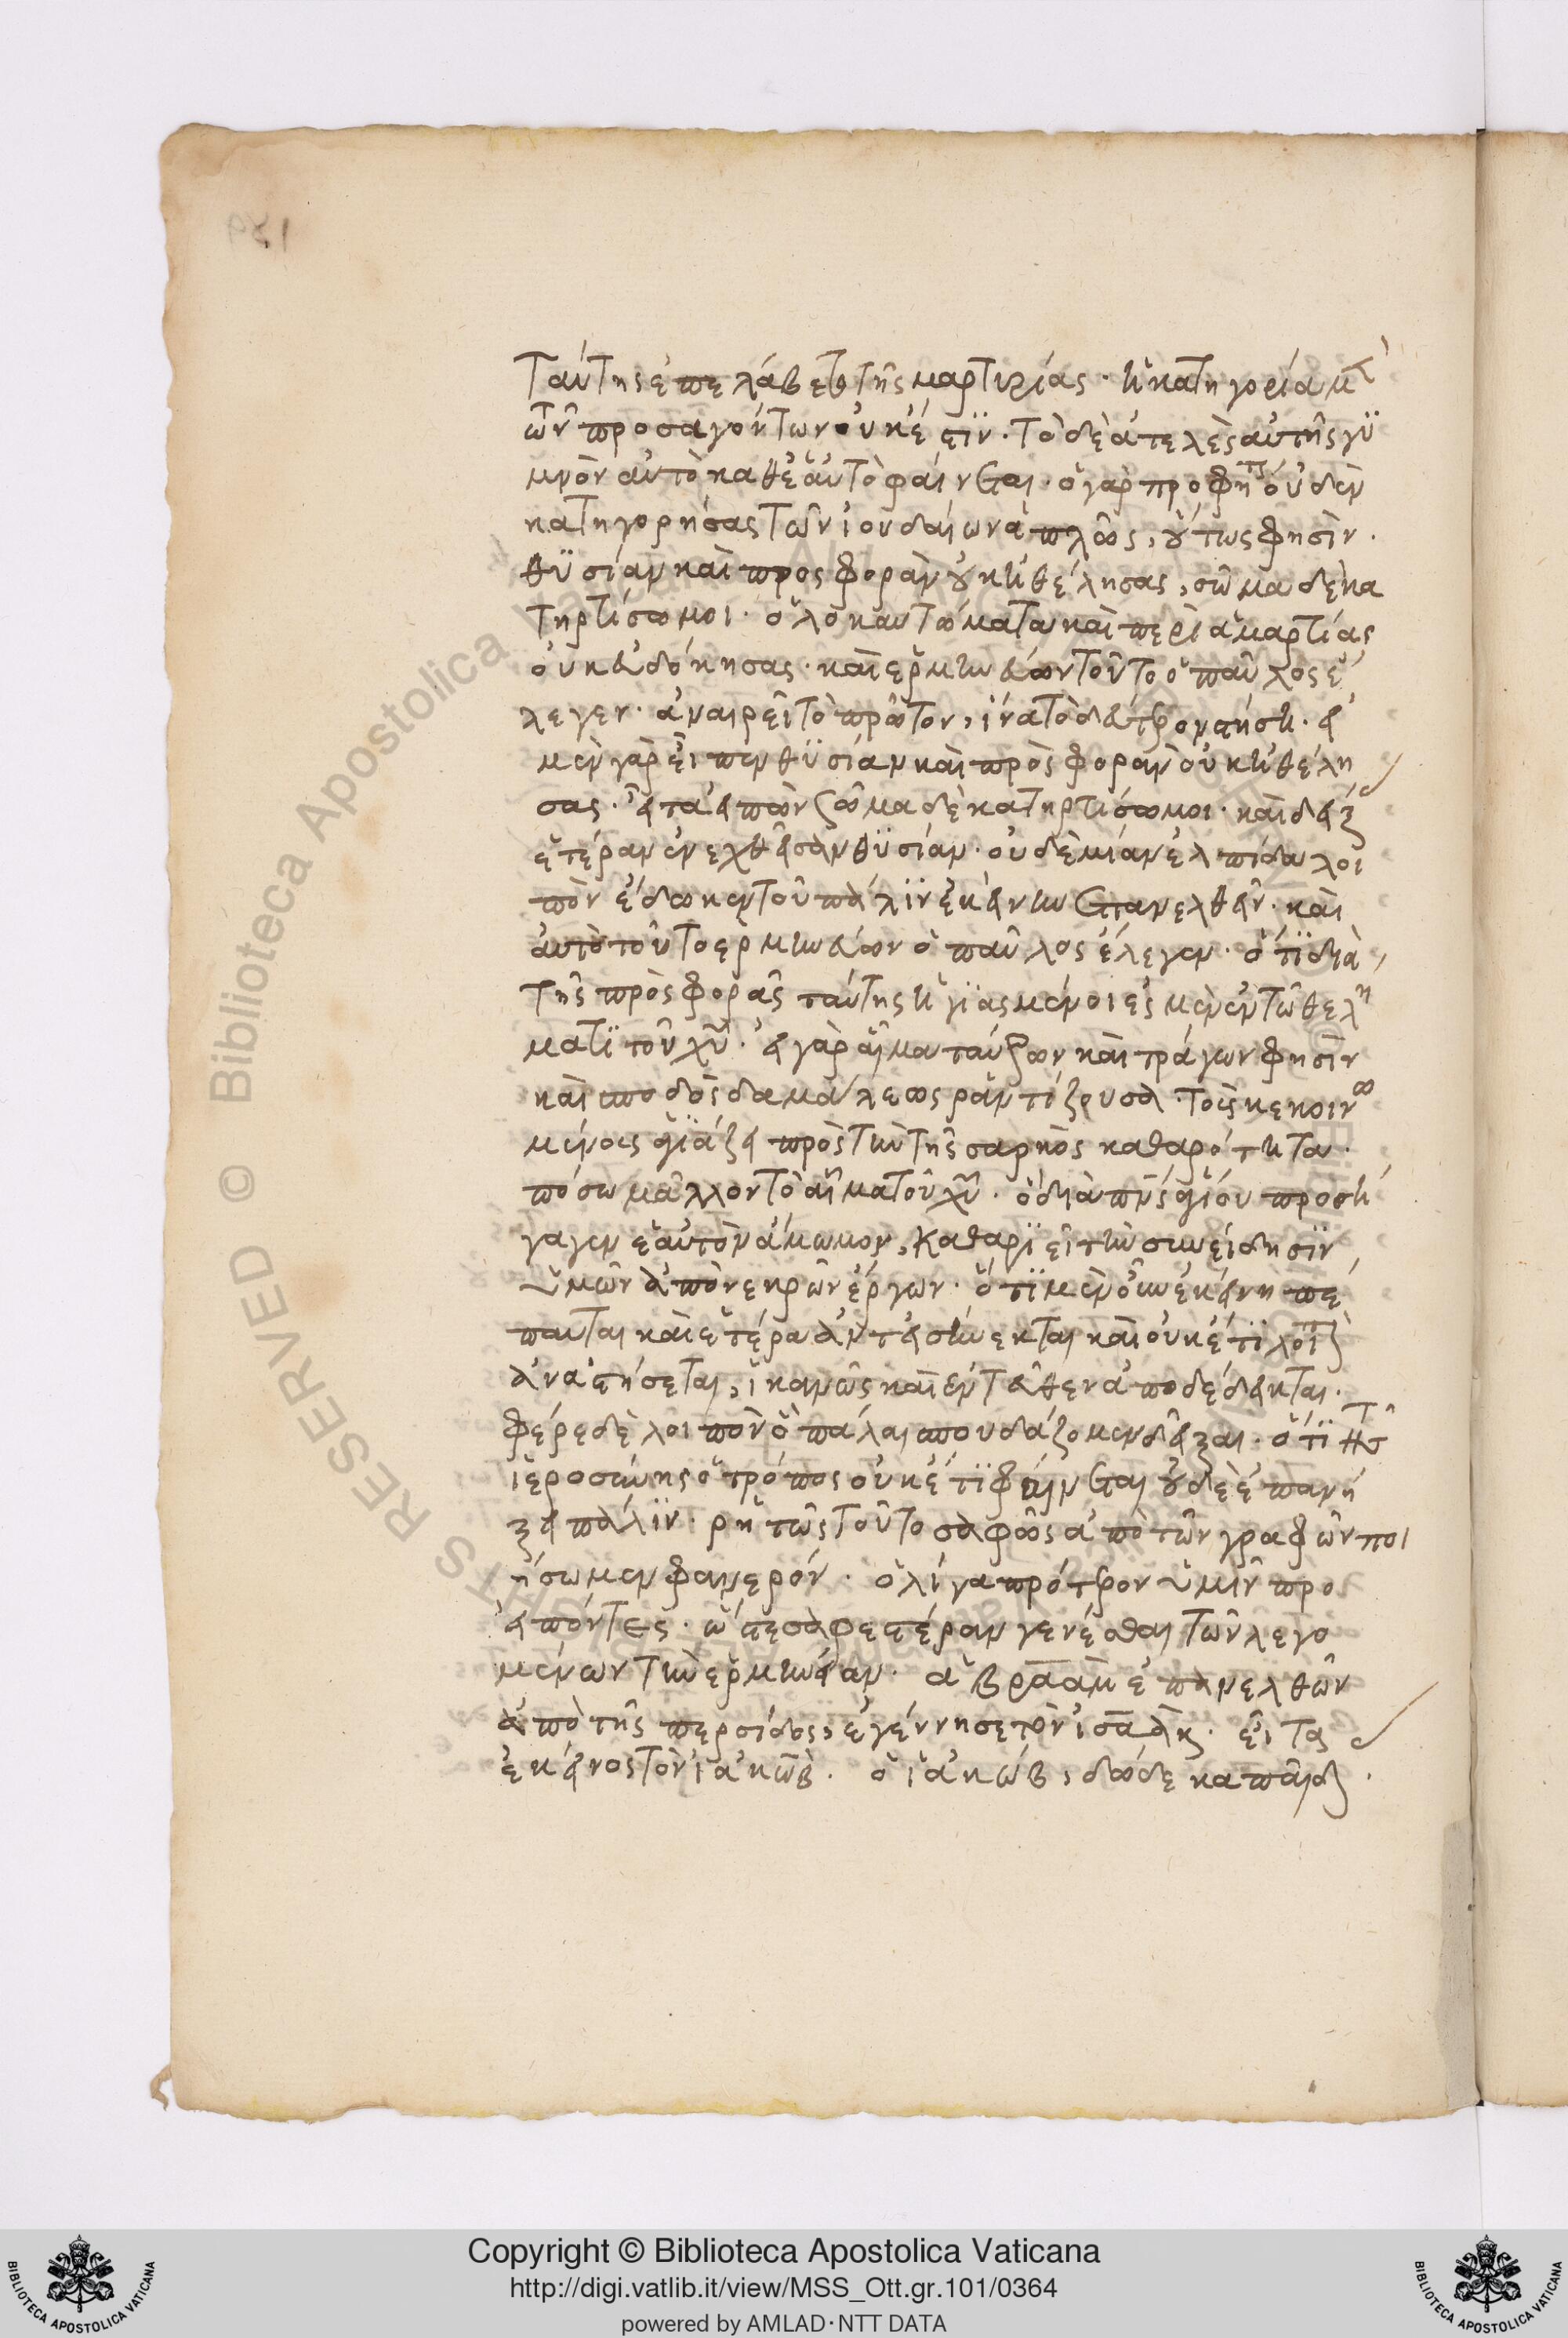 Ταύτης ἐπελάβετο τῆς μαρτυρίας· ἡ κατηγορία μὲ
τῶν προσαγόντων οὐκέστιν· τὸ δὲ ἀτελὲς αὐτῆς γϋ
μνὸν αὐτὸ καθεἁυτὸ φαίνεται· ὁ γὰρ προφήτης οὐδὲν
κατηγορήσας τῶν ἰουδαίων ἁπλῶς, οὕτως φησὶν·
θϋσίαν καὶ προσφορὰν οὐκ ἠθέλησας, σῶμα δὲ κα
τηρτίσω μοι· ὁλοκαυτώματα καὶ περὶ ἁμαρτίας
οὐκ εὐδόκησας· καὶ ἑρμηνεύων τοῦτο ὁ παῦλος ἔ
λεγεν· ἀναιρεῖ τὸ πρῶτον, ἵνα τὸ δεύτερον στήση· εἰ
μὲν γὰρ εἶπεν θϋσίαν καὶ προσφορὰν οὐκ ἠθέλη
σας· εἶτα εἰπὼν σῶμα δὲ κατηρτίσω μοι· καὶ δείξ
ἑτέραν ἐνεχθεῖσαν θϋσίαν· οὐδεμίαν ἐλπίδα λοι
πὸν ἔδωκεν τοῦ πάλϊν ἐκείνην ἐπανελθεῖν· καὶ
αὐτὸ τοῦτο ἑρμηνεύων ὁ παῦλος ἔλεγεν· ὅτϊ διὰ
τῆς προσφορᾶς ταύτης ἡγϊασμένοι ἐσμὲν ἐν τῶ θελή
ματϊ τοῦ χῦ· εἰ γὰρ αἷμα ταύρων καὶ τράγων φησὶν
καὶ σποδὸς δαμάλεως ραντίζουσα· τοὺς κεκοινω
μένους ἁγϊάζει πρὸς τὴν τῆς σαρκὸς καθαρότητα·
πόσω μᾶλλον τὸ αἷμα τοῦ χῦ· ὃ διὰ πνς ἁγίου προσή
γαγεν ἑαυτὸν ἄμωμον, καθαρϊεῖ τὴν συνείδησϊν
ὑμῶν ἀπὸ νεκρῶν ἔργων· ὅτϊ μὲν οὖν ἐκείνη πέ
παυται καὶ ἑτέρα ἀντεισήνεκται καὶ οὐκέτϊ λοιπὸν
ἀναστήσεται, ἱκανῶς καὶ ἐντεῦθεν ἀποδέδεικται·
φέρε δὲ λοιπὸν ὃ πάλαι σπουδάζομεν δεῖξαι· ὅτϊ τῆς
ἱεροσύνης ὁ τρόπος οὐκέτϊ φαίνεται οὐδὲ ἐπανή
ξει πάλϊν· ρητῶς τοῦτο σαφῶς ἀπὸ τῶν γραφῶν ποι
ήσωμεν φανερόν· ὀλίγα πρότερον ὑμῖν προ
ειπόντες· ὥστε σαφεστέραν γενέσθαι τῶν λεγο
μένων τὴν ἑρμηνείαν· ἀβραὰμ ἐπανελθὼν
ἀπὸ τῆς περσίδος, ἐγέννησε τὸν ἰσαάκ· εἶτα
ἐκεῖνος τὸν ἰακώβ· ὁ ἰακώβ, δώδεκα παῖδας·
Copyright © Biblioteca Apostolica Vaticana
http://digi.vatlib.it/view/MSS_Ott.gr.101/0364
powered by AMLAD·NTT DATA